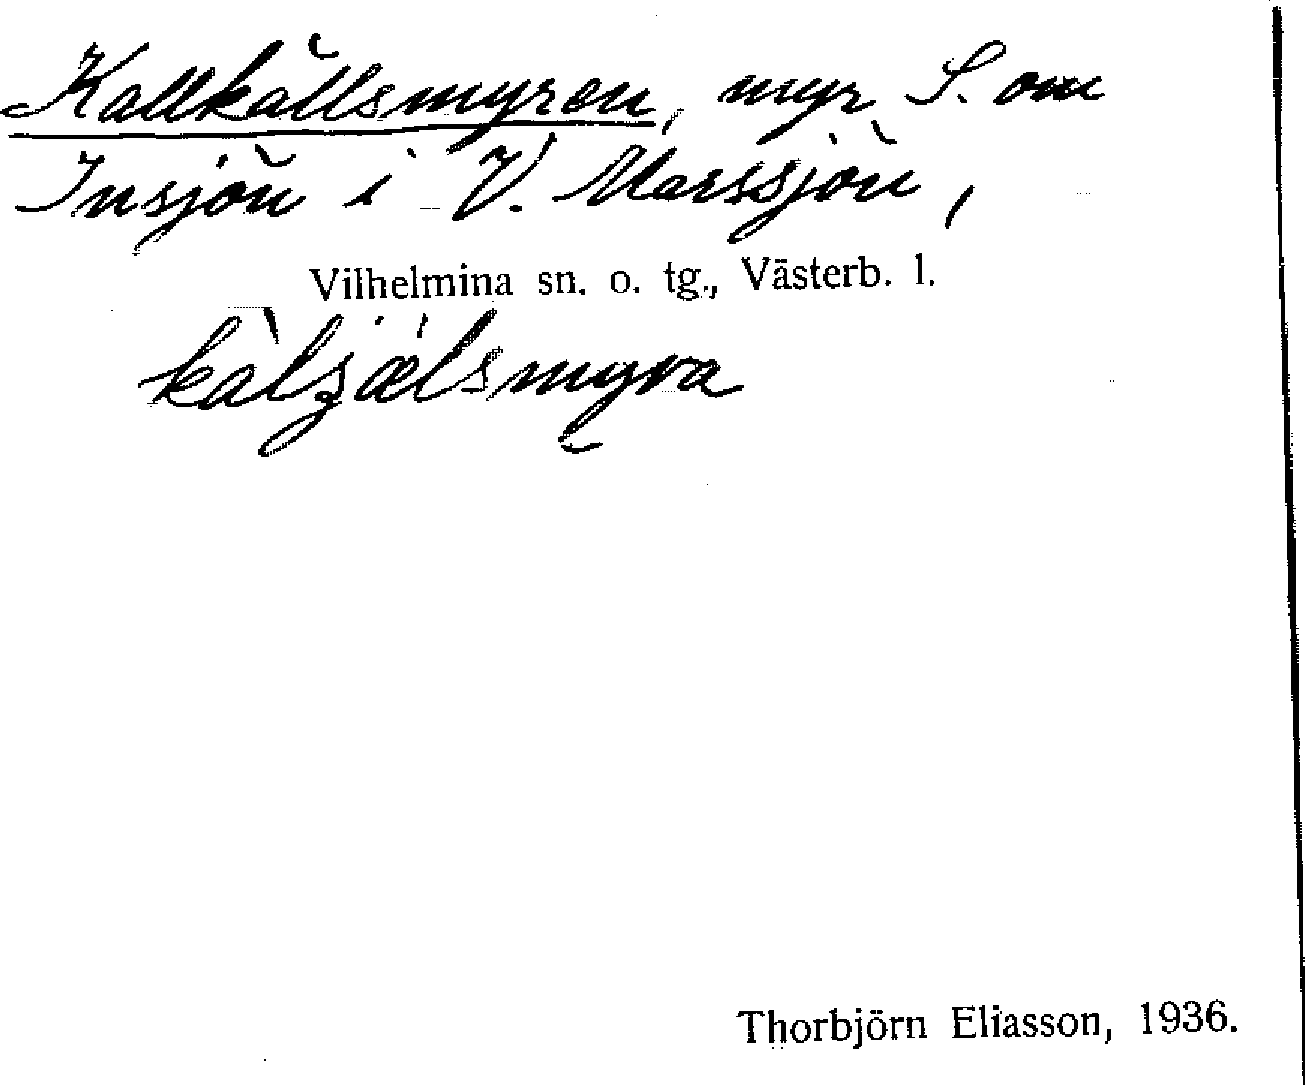 Kallkällsmyren, myr S. om
Insjön i V. Marssjön,
Vilhelmina sn. o. tg., Västerb. l.
Thorbjörn Eliasson, 1936.